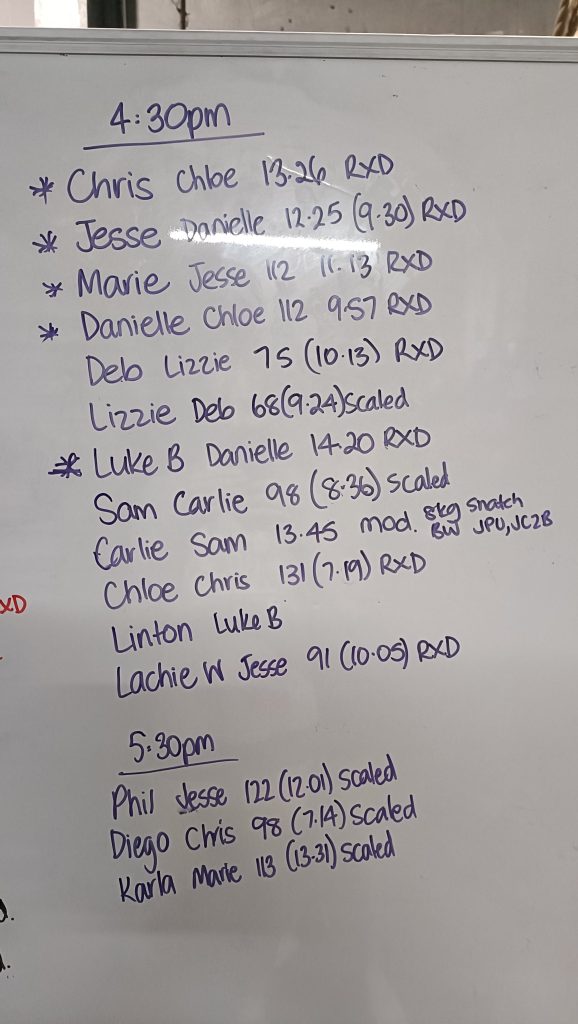 4:30pm
* Chris Chloe 13.26 RXD
* Jesse Danielle 12.25 (9.30) RXD
* Marie Jesse 112 11.13 RXD
* Danielle Chloe 112 9.57 RXD
Deb Lizzie 75 (10.13) RXD
Lizzie Deb 68(9.24)scaled
* Luke B Danielle 14.20 RXD
Sam Carlie 98 (8.36) scaled
Carlie Sam 13.45 mod. 8kg snatch
BW JPU, JC2B
Chloe Chris 131 (7.19) RXD
XD
Linton Luke B
Lachie W Jesse 91 (10.05) RXD
5:30pm
Phil Jesse 122 (12.01) scaled
Diego Chris 98 (7.14) scaled
Karla Marie 113 (13.31) scaled